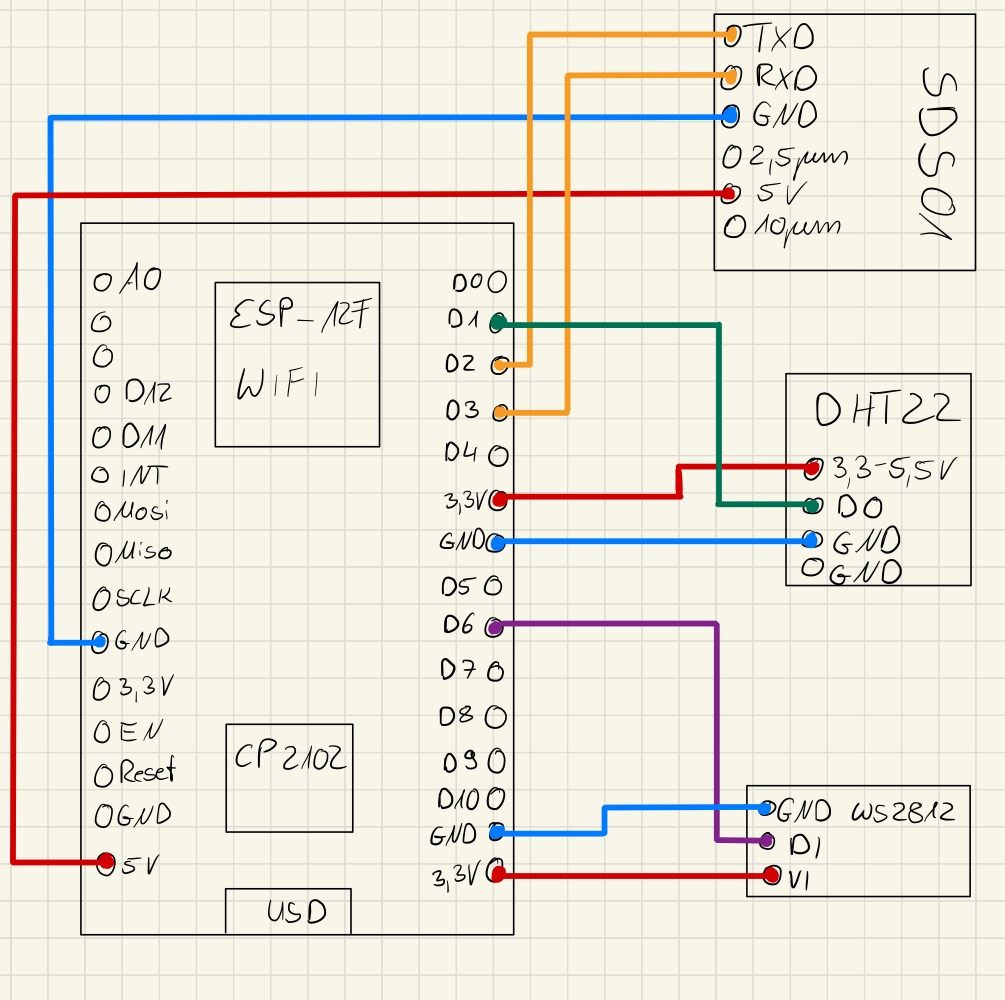 TXD
RXD
GND
2,5µm
5V
10µm
SDS01
A0
D12
D11
INT
Mosi
Miso
SCLK
GND
3,3V
EN
Reset
GND
5V
ESP-12F
WIFI
CP2102
USD
D0
D1
D2
D3
D4
3,3V
GND
D5
D6
D7
D8
D9
D10
GND
3,3V
DHT22
3,3-5,5V
DO
GND
GND
GND WS2812
DI
VI